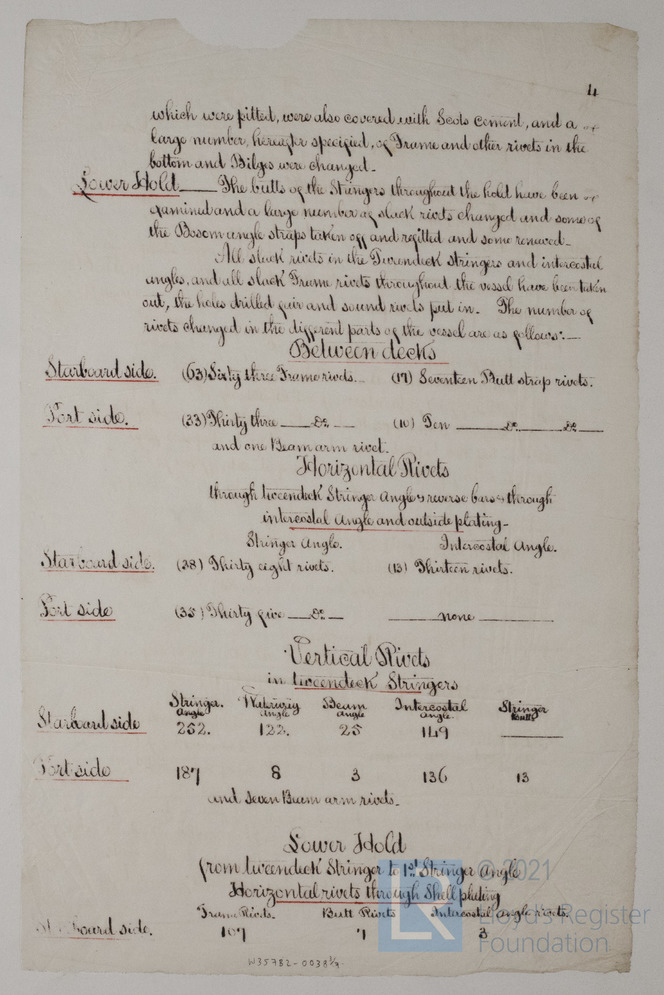 4
which were pitted, were also covered with Scots Cement, and a
large number, hereafter specified, of Frame and other rivets in the
bottom and Bilges were changed.
Lower Hold — The butts of the Stringers throughout the hold have been
examined and a large number of slack rivets changed and some of
the Bosom angle straps taken off and refitted and some renewed.
All slack rivets in the Tweendeck stringers and intercostal
angles, and all slack Frame rivets throughout the vessel have been taken
out, the holes drilled fair and sound rivets put in. The number of
rivets changed in the different parts of the vessel are as follows:—
Between decks
Starboard side. (63) Sixty three Frame rivets. (17) Seventeen Butt strap rivets.
Port side. (33) Thirty three — Do — (10) Ten — Do — Do —
and one Beam arm rivet.
Horizontal Rivets
through tweendeck Stringer Angle & reverse bars & through
intercostal angle and outside plating—
Stringer Angle. Intercostal Angle.
Starboard side. (38) Thirty eight rivets. (13) Thirteen rivets.
Port side (35) Thirty five — Do — — none —
Vertical Rivets
in tweendeck Stringers
Stringer Angle Waterway angle Beam angle Intercostal angle. Stringer
Starboard side 252. 122. 25 149 —
Port side 187 8 3 136 13
and seven Beam arm rivets.
Lower Hold
from tweendeck Stringer to 1st Stringer angle
Horizontal rivets through Shell plating
Frame Rivets. Butt Rivets Intercostal angle rivets.
Starboard side. 107 7 3
W35782-0033 1/3
© 2021
LR
Lloyd's Register
Foundation